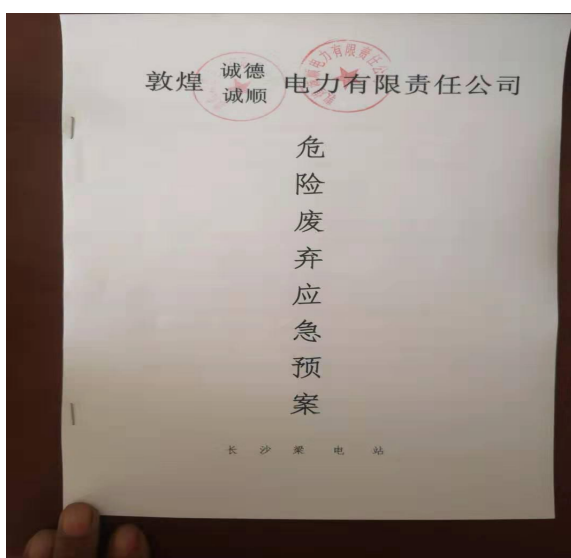 敦煌 诚德 电力有限责任公司
诚顺
危
险
废
弃
应
急
预
案
长沙梁电站